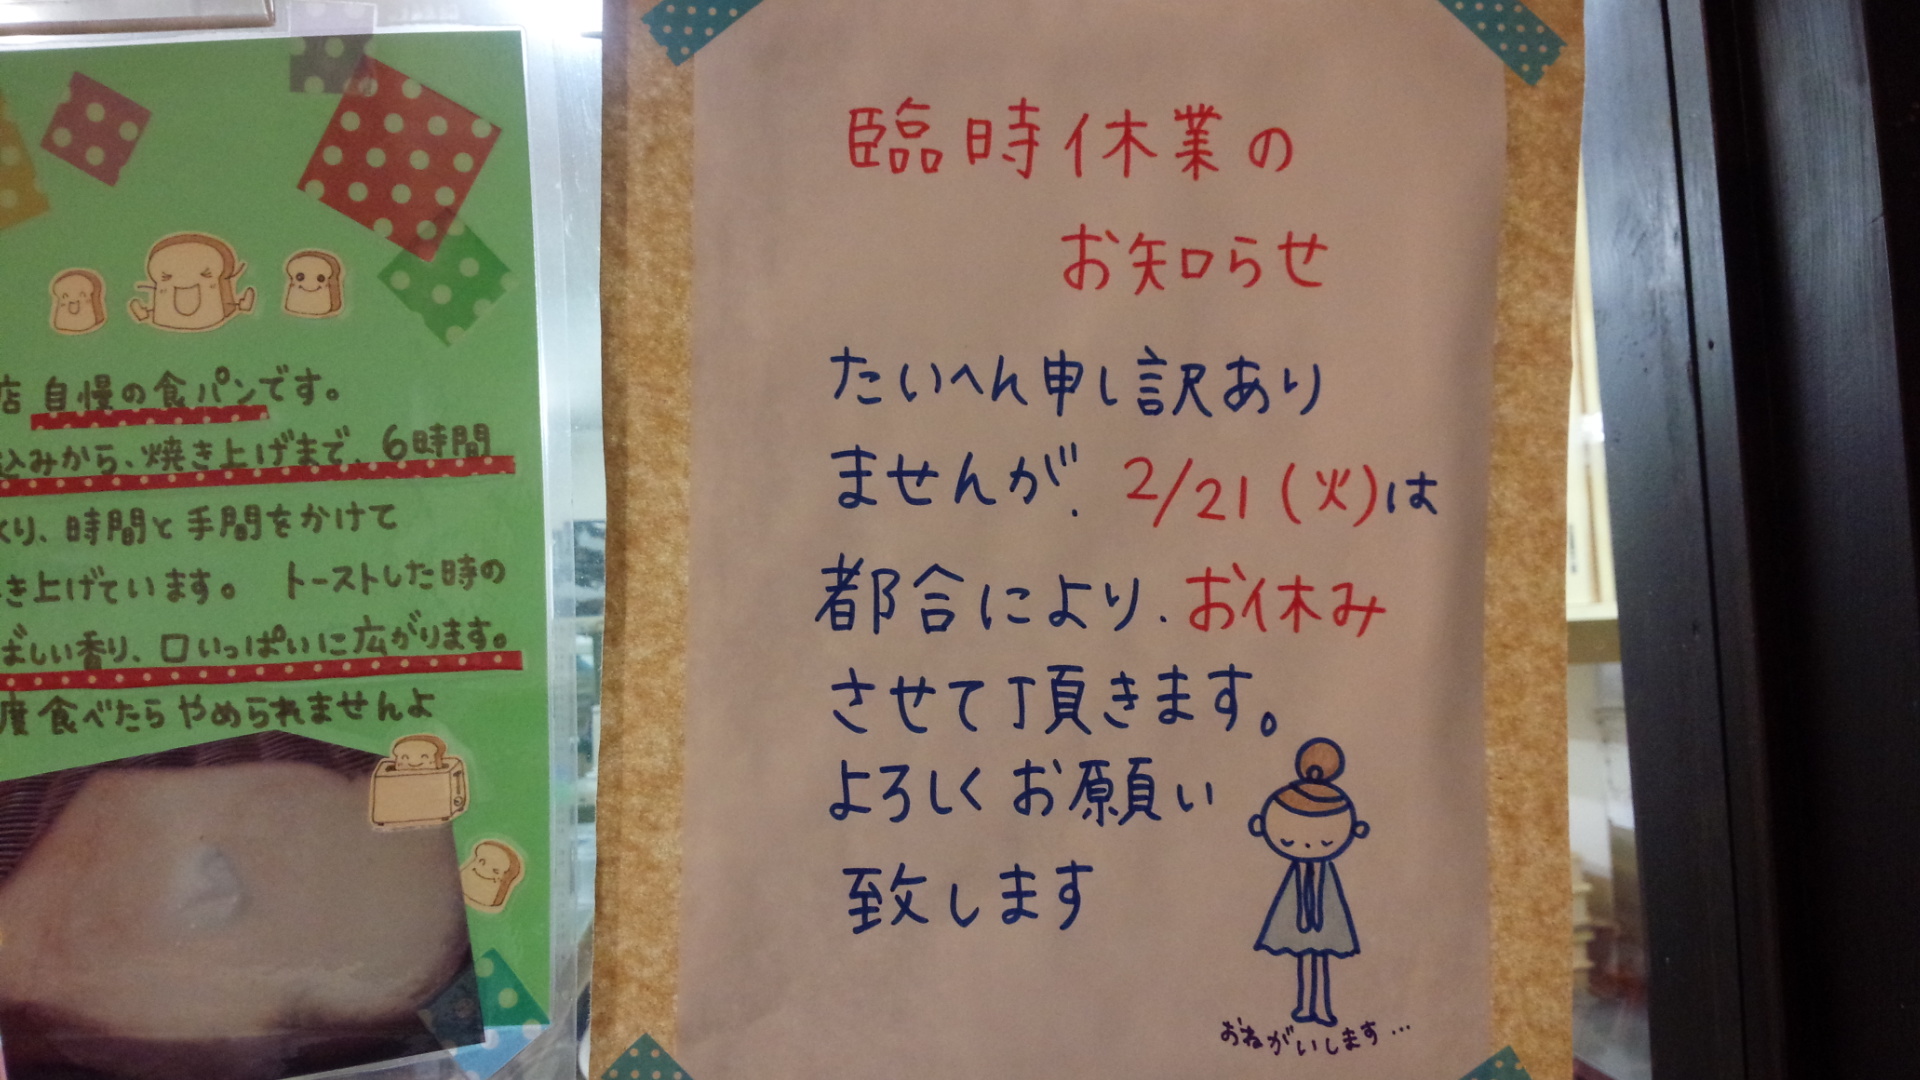 店 自慢の食パンです。
込みから、焼き上げまで、6時間
くり、時間と手間をかけて
き上げています。 トーストした時の
ばしい香り、口いっぱいに広がります。
度食べたらやめられませんよ
臨時休業の
お知らせ
たいへん申し訳あり
ませんが、2/21(火)は
都合により、お休み
させて頂きます。
よろしくお願い
致します
おねがいします…